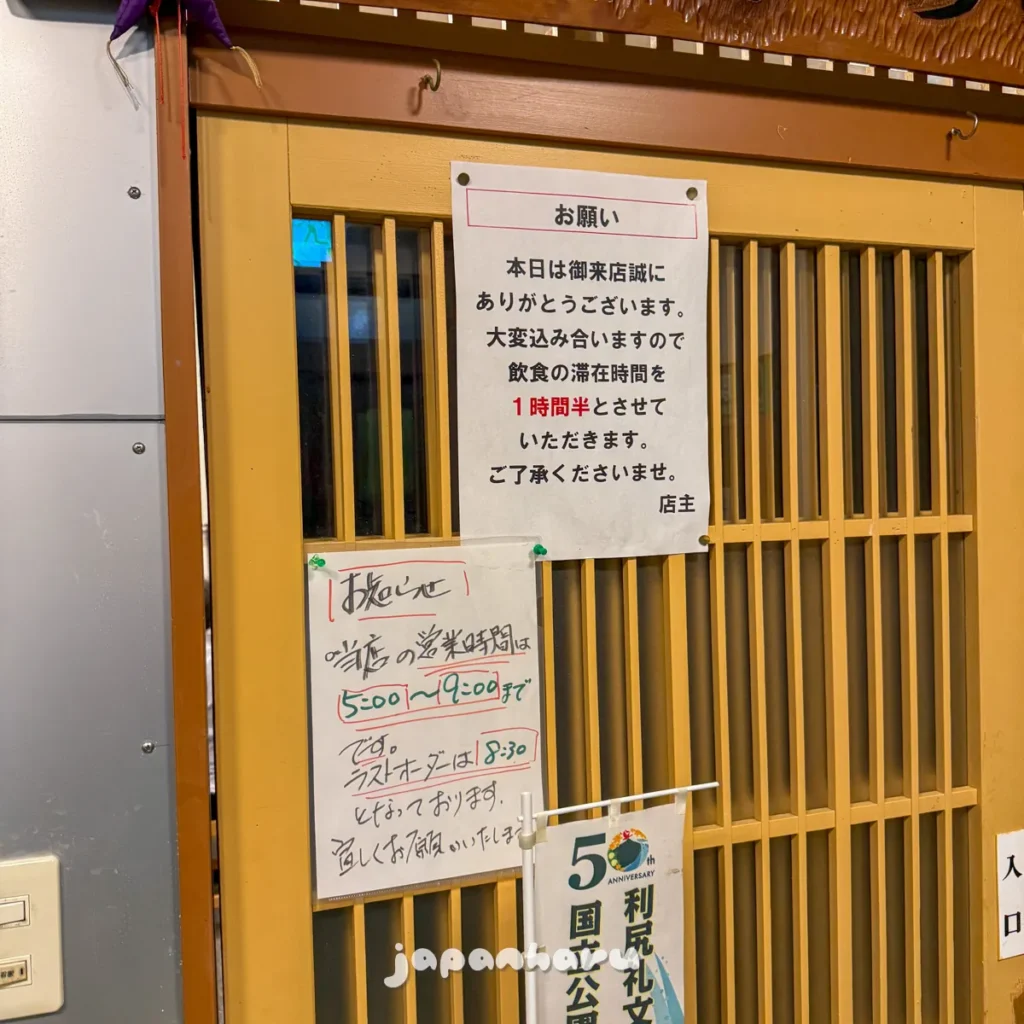 お願い
本日は御来店誠に
ありがとうございます。
大変込み合いますので
飲食の滞在時間を
1時間半とさせて
いただきます。
ご了承くださいませ。
店主
お知らせ
当店の営業時間は
5:00〜9:00まで
です。
ラストオーダーは8:30
となっております.
宜しくお願いいたします
50th
ANNIVERSARY
利尻礼文
国立公園
入口
japanharu